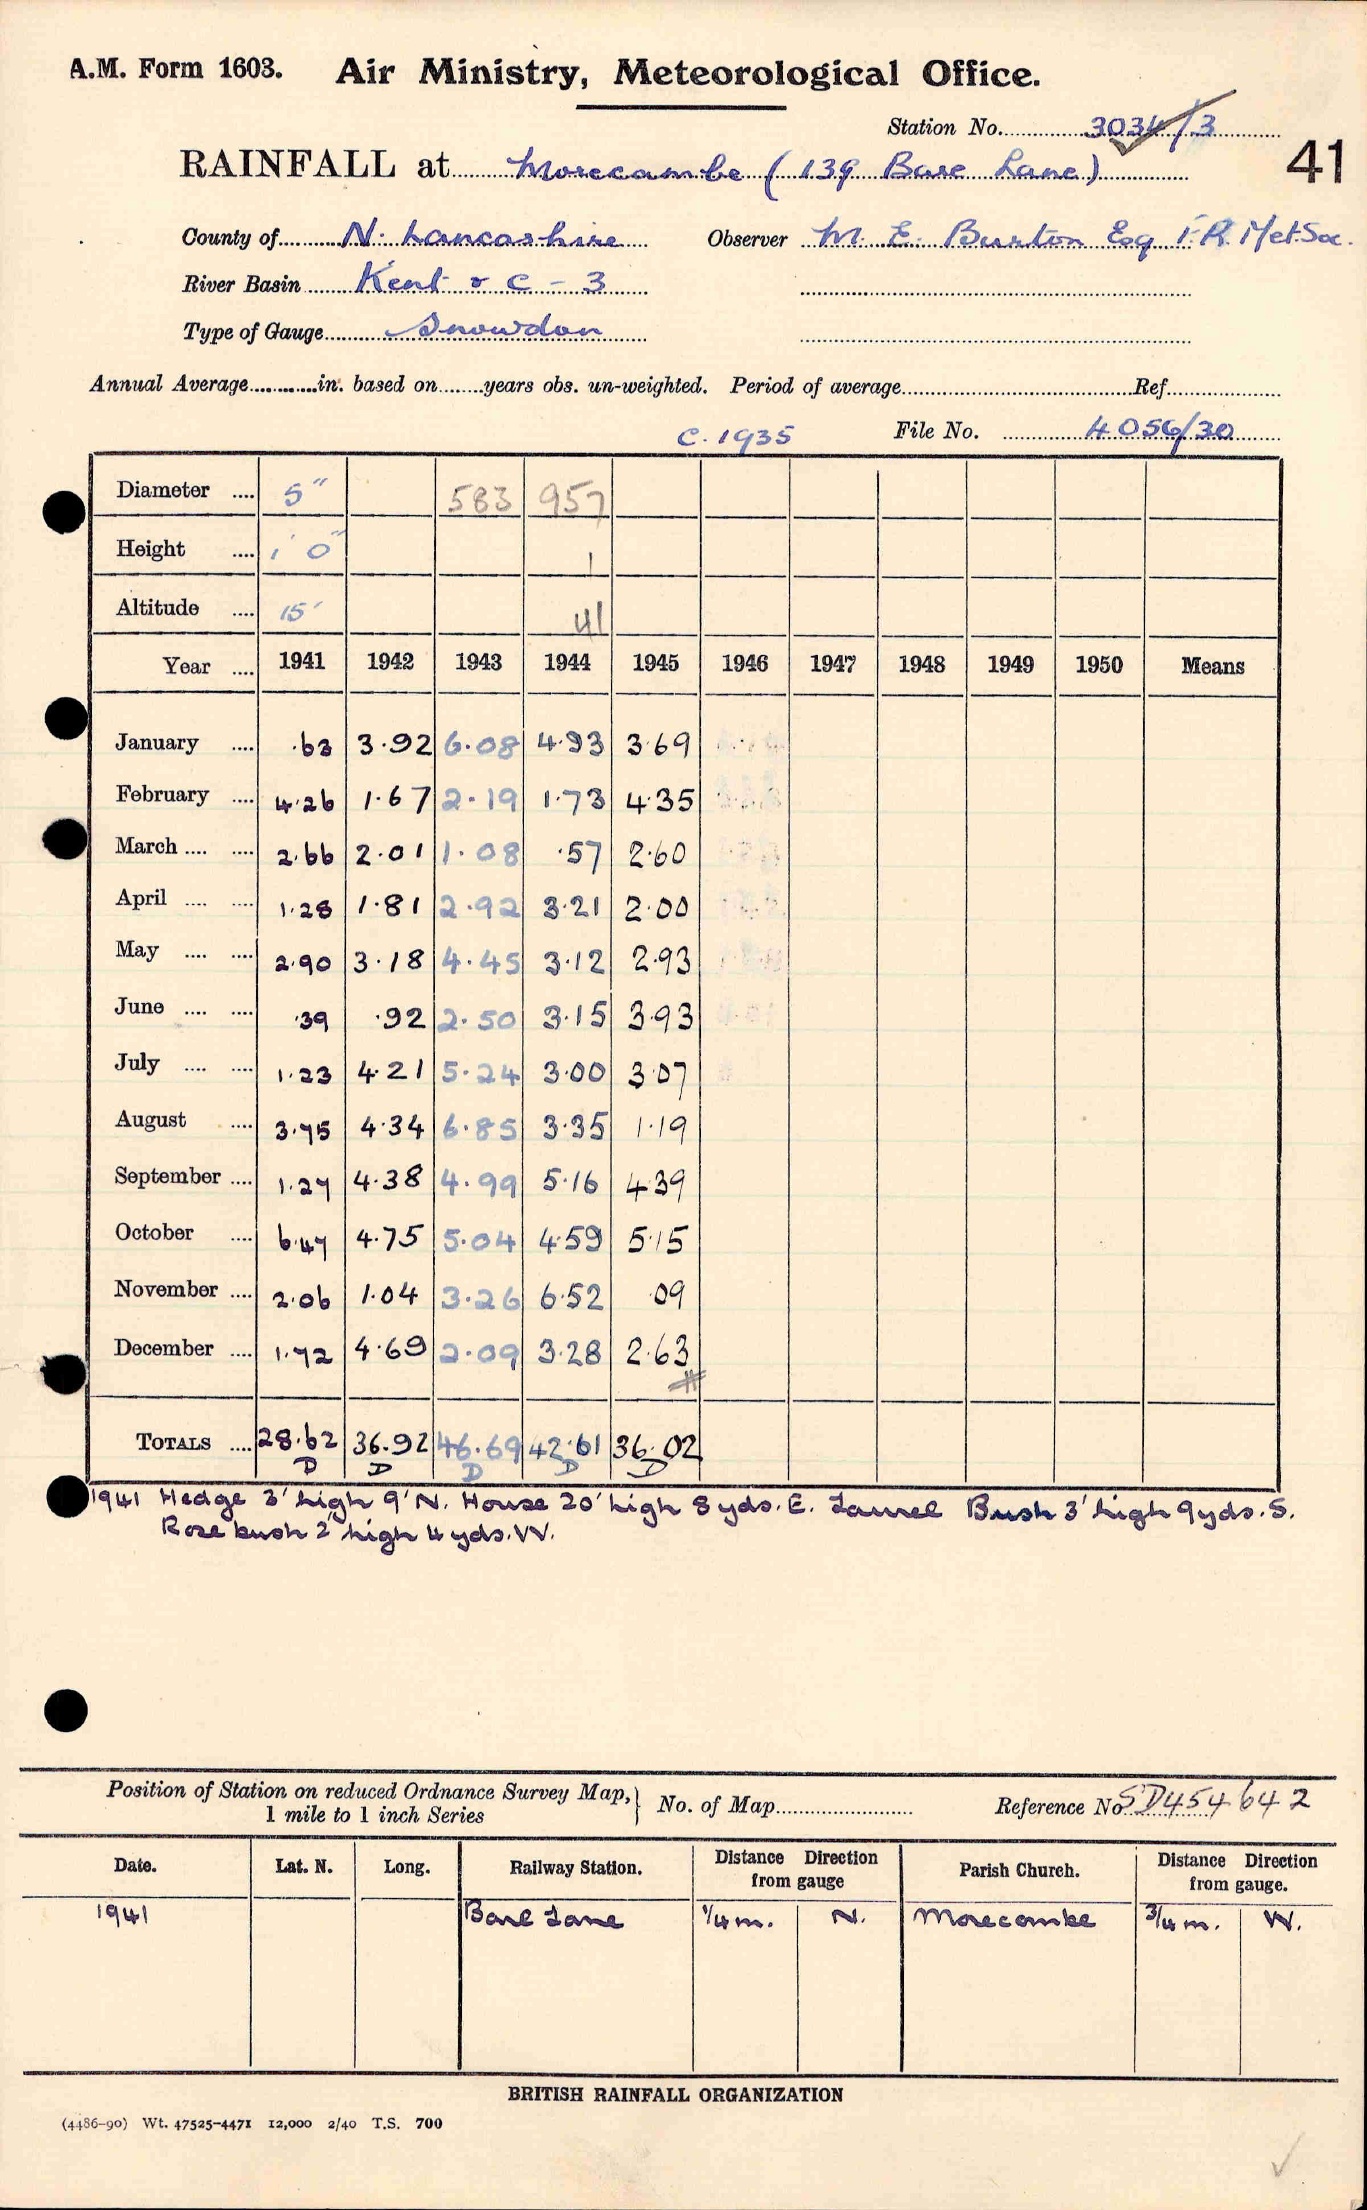 A.M. Form 1603. Air Ministry, Meteorological Office.
Station No. 3034/3
41
RAINFALL at Morecambe (139 Bare Lane)
County of N. Lancashire Observer M. E. Burton Esq F.R.Met.Soc.
River Basin Kent & C - 3
Type of Gauge Snowdon
Annual Average............in. based on.......years obs. un-weighted. Period of average.......... Ref..........
C. 1935 File No. 4056/30
Diameter .... 5" 583 957
Height .... 1' 0" 1
Altitude .... 15' 41
Year .... 1941 1942 1943 1944 1945 1946 1947 1948 1949 1950 Means
January .... .63 3.92 6.08 4.93 3.69
February .... 4.26 1.67 2.19 1.73 4.35
March .... .... 2.66 2.01 1.08 .57 2.60
April .... .... 1.28 1.81 2.92 3.21 2.00
May .... .... 2.90 3.18 4.45 3.12 2.93
June .... .... .39 .92 2.50 3.15 3.93
July .... .... 1.23 4.21 5.24 3.00 3.07
August .... 3.75 4.34 6.85 3.35 1.19
September .... 1.27 4.38 4.99 5.16 4.39
October .... 6.47 4.75 5.04 4.59 5.15
November .... 2.06 1.04 3.26 6.52 .09
December .... 1.72 4.69 2.09 3.28 2.63
#
TOTALS .... 28.62 36.92 46.69 42.61 36.02
D D D D D
1941 Hedge 3' high 9' N. House 20' high 8 yds. E. Laurel Bush 3' high 9 yds. S.
Rose bush 2' high 4 yds. W.
Position of Station on reduced Ordnance Survey Map, 1 mile to 1 inch Series } No. of Map.......... Reference No SD454642
Date. Lat. N. Long. Railway Station. Distance Direction from gauge Parish Church. Distance Direction from gauge.
1941 Bare Lane 1/4 m. N. Morecambe 3/4 m. W.
BRITISH RAINFALL ORGANIZATION
(4486-90) Wt. 47525-4471 12,000 2/40 T.S. 700